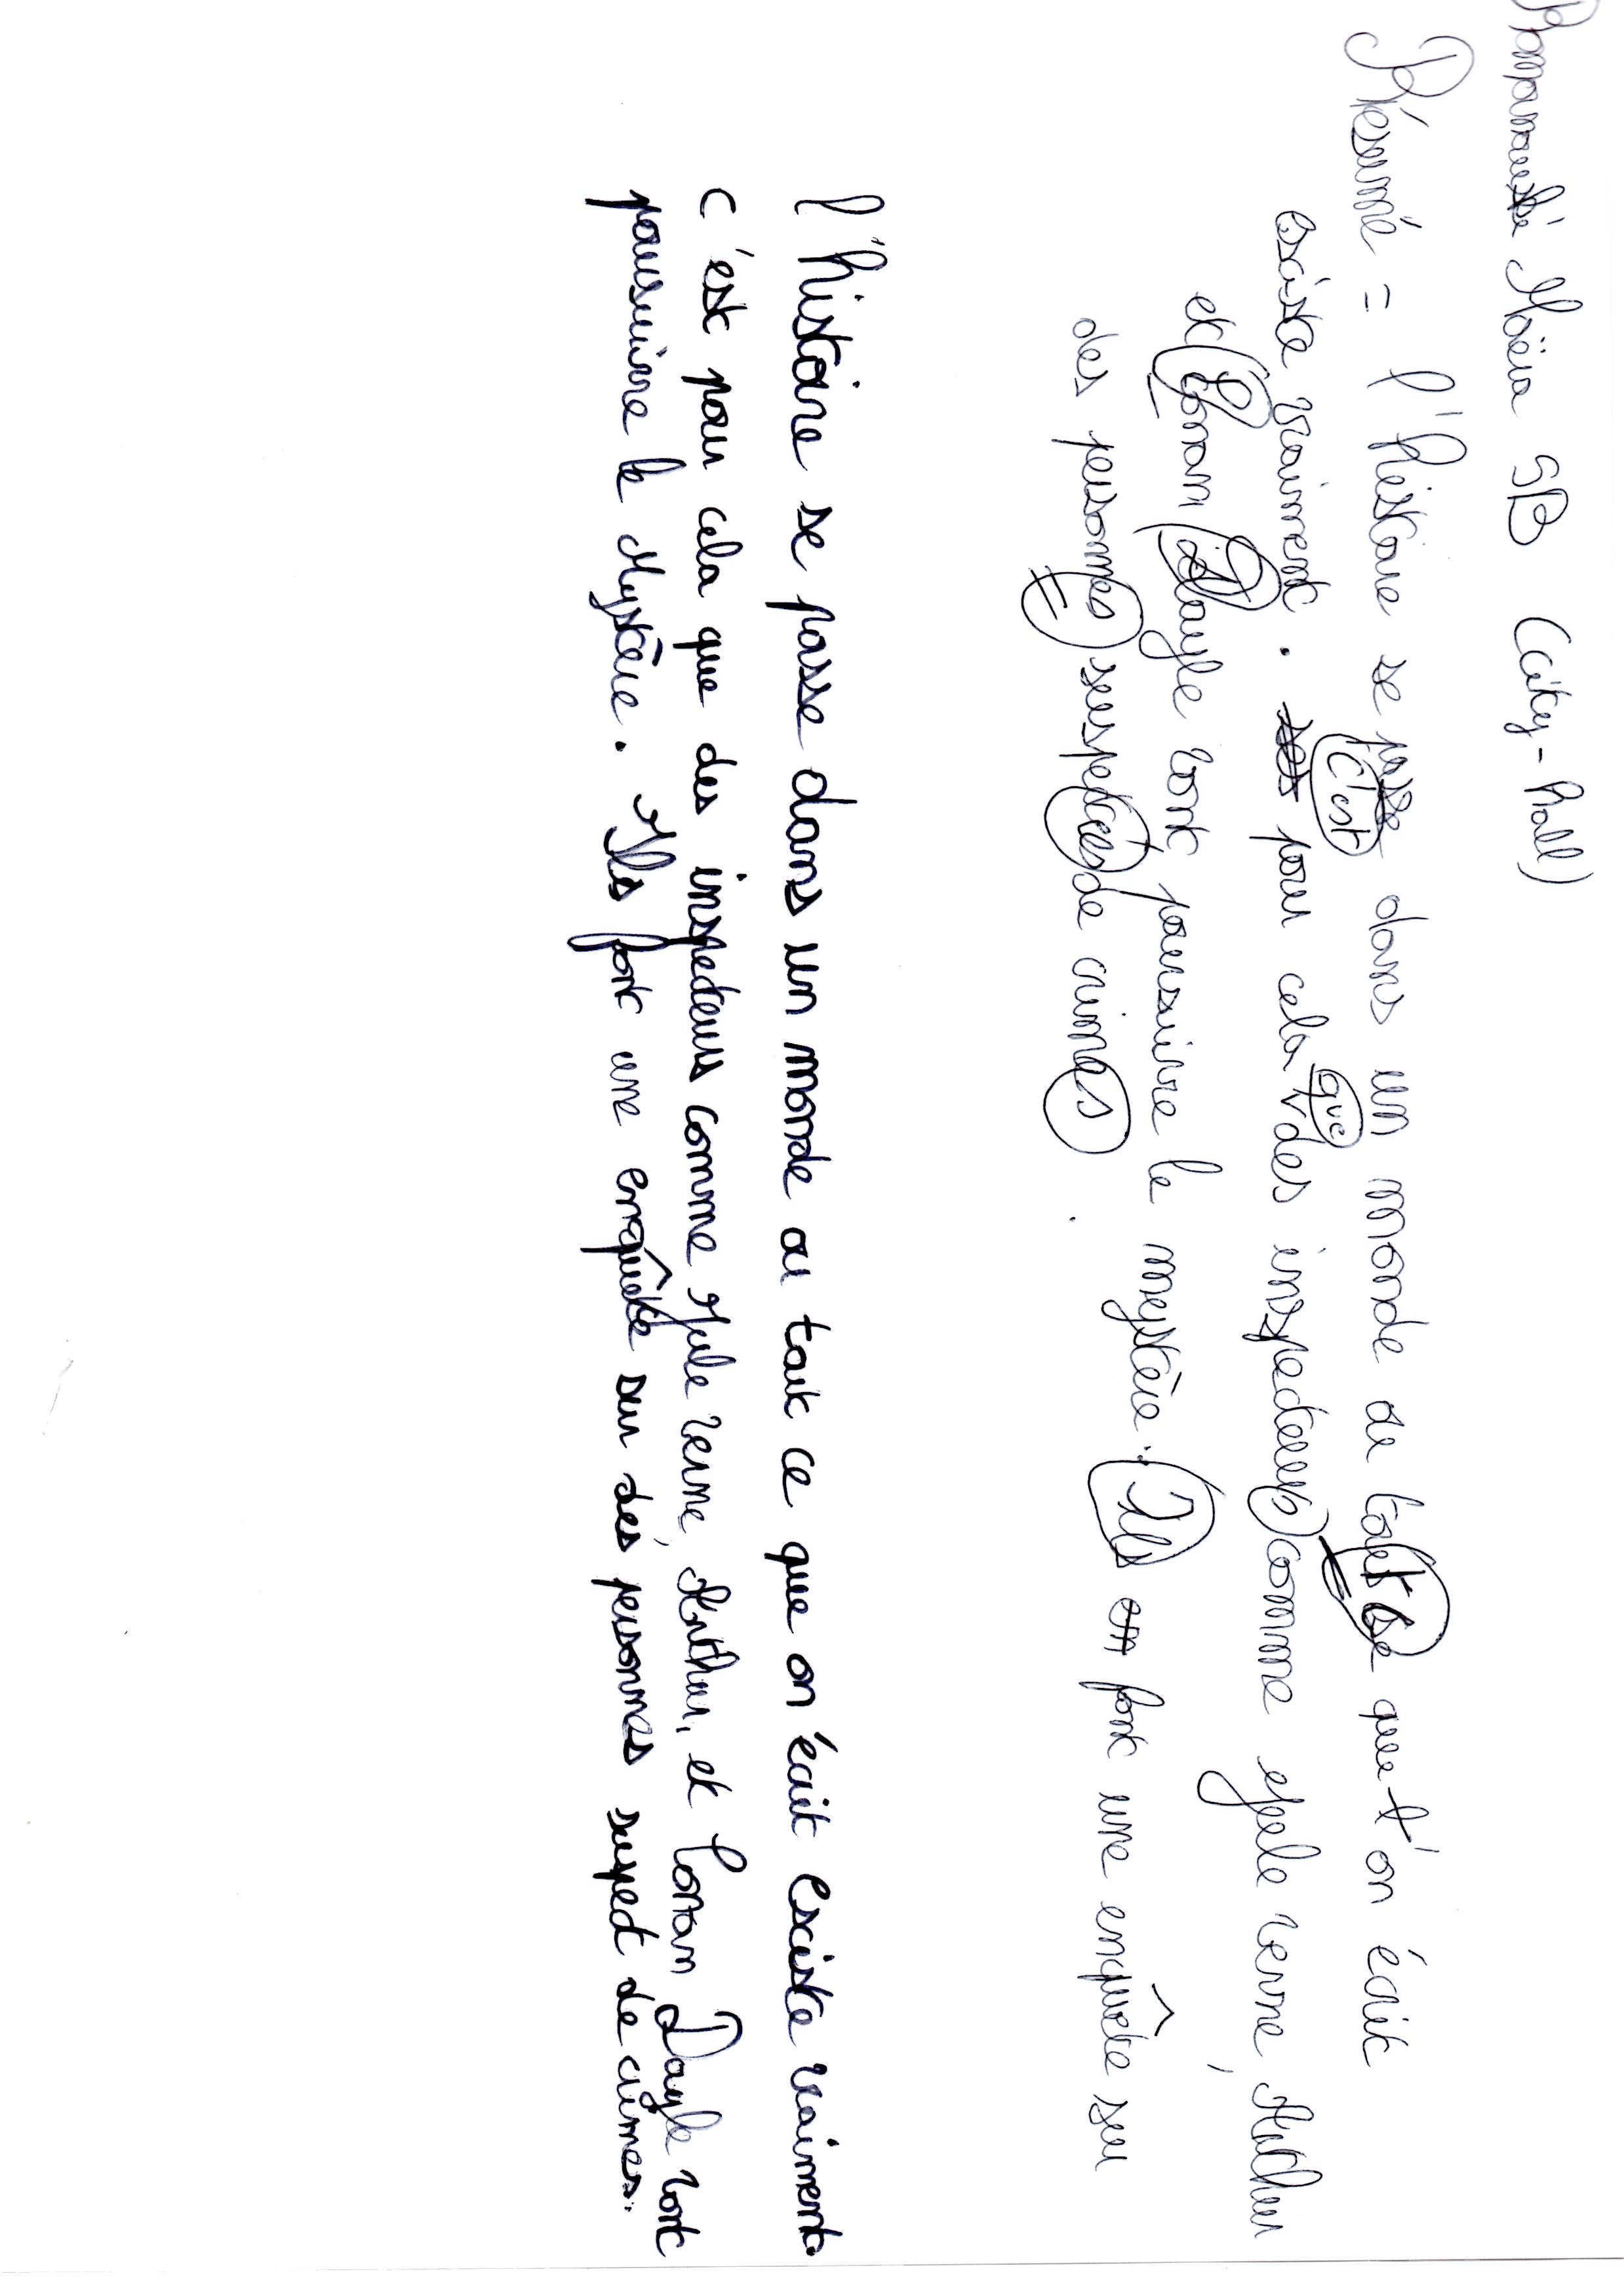 Maëva 5B (City-hall)
Résumé = l'histoire se passe dans un monde ou tout ce que l'on écrit
c'est que
existe vraiment. pour cela des inspecteurs comme jule verne, Arthur
et Conan Doyle vont poursuivre le mystère. Ils font une enquête sur
des personnes suspectés de crimes.
l'histoire se passe dans un monde ou tout ce que on écrit existe vraiment.
c'est pour cela que des inspecteurs comme Jule verne, Arthur, et Conan Doyle vont
poursuivre le Mystère. Ils font une enquête sur des personnes suspect de crimes.